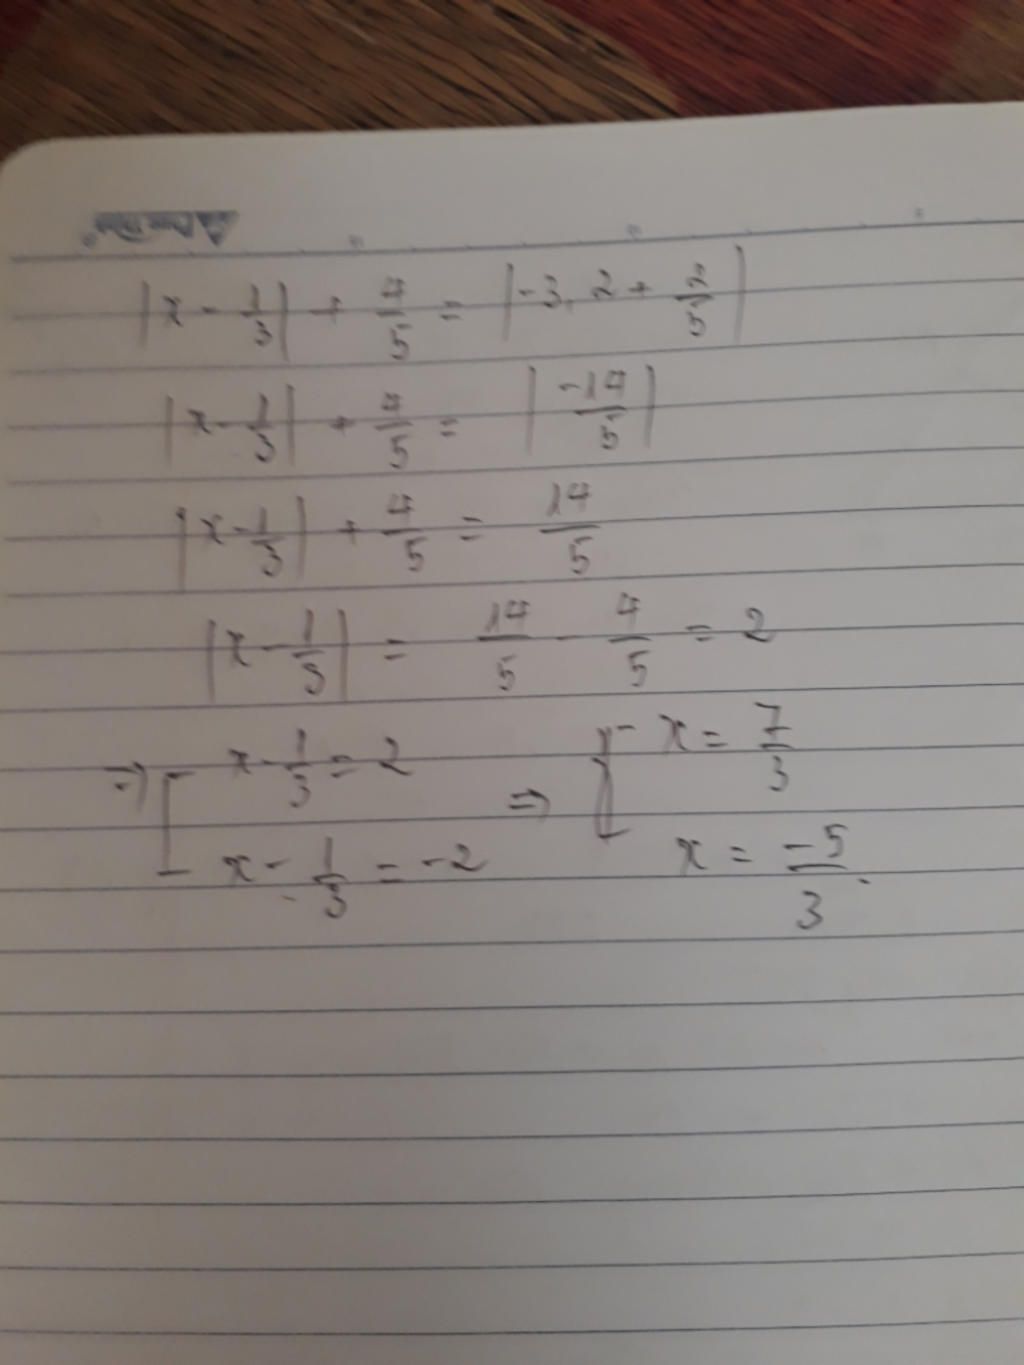 |x - 1/3| + 4/5 = |-3,2 + 2/5|
|x - 1/3| + 4/5 = |-14/5|
|x - 1/3| + 4/5 = 14/5
|x - 1/3| = 14/5 - 4/5 = 2
⇒ [ x - 1/3 = 2 ⇒ [ x = 7/3
x - 1/3 = -2 x = -5/3.